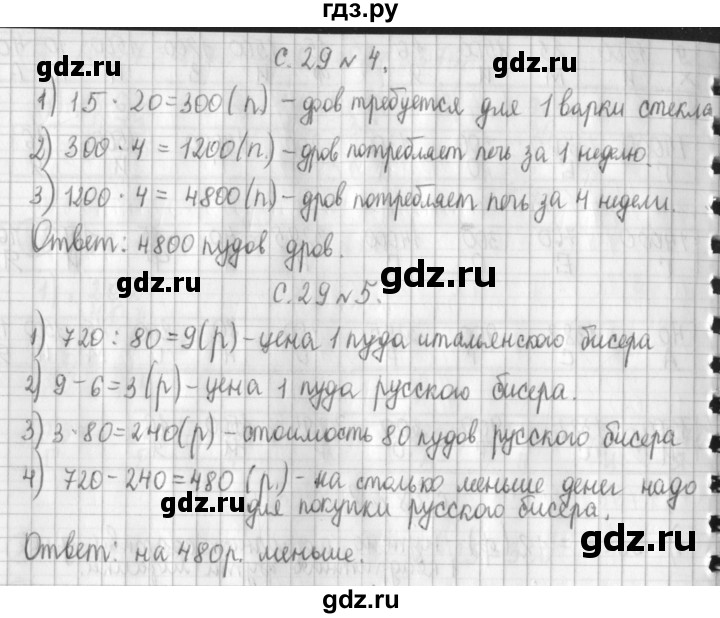 гдз.ру
с. 29 № 4.
1) 15 · 20 = 300 (п) – дров требуется для 1 варки стекла
2) 300 · 4 = 1200 (п.) – дров потребляет печь за 1 неделю.
3) 1200 · 4 = 4800 (п) – дров потребляет печь за 4 недели.
Ответ: 4800 пудов дров.
с. 29 № 5.
1) 720 : 80 = 9 (р) – цена 1 пуда итальянского бисера
2) 9 – 6 = 3 (р) – цена 1 пуда русского бисера.
3) 3 · 80 = 240 (р) – стоимость 80 пудов русского бисера
4) 720 – 240 = 480 (р.) – на столько меньше денег надо
для покупки русского бисера.
Ответ: на 480 р. меньше.
gdz.ru
gdz.ru
gdz.ru
gdz.ru
gdz.ru
gdz.ru
gdz.ru